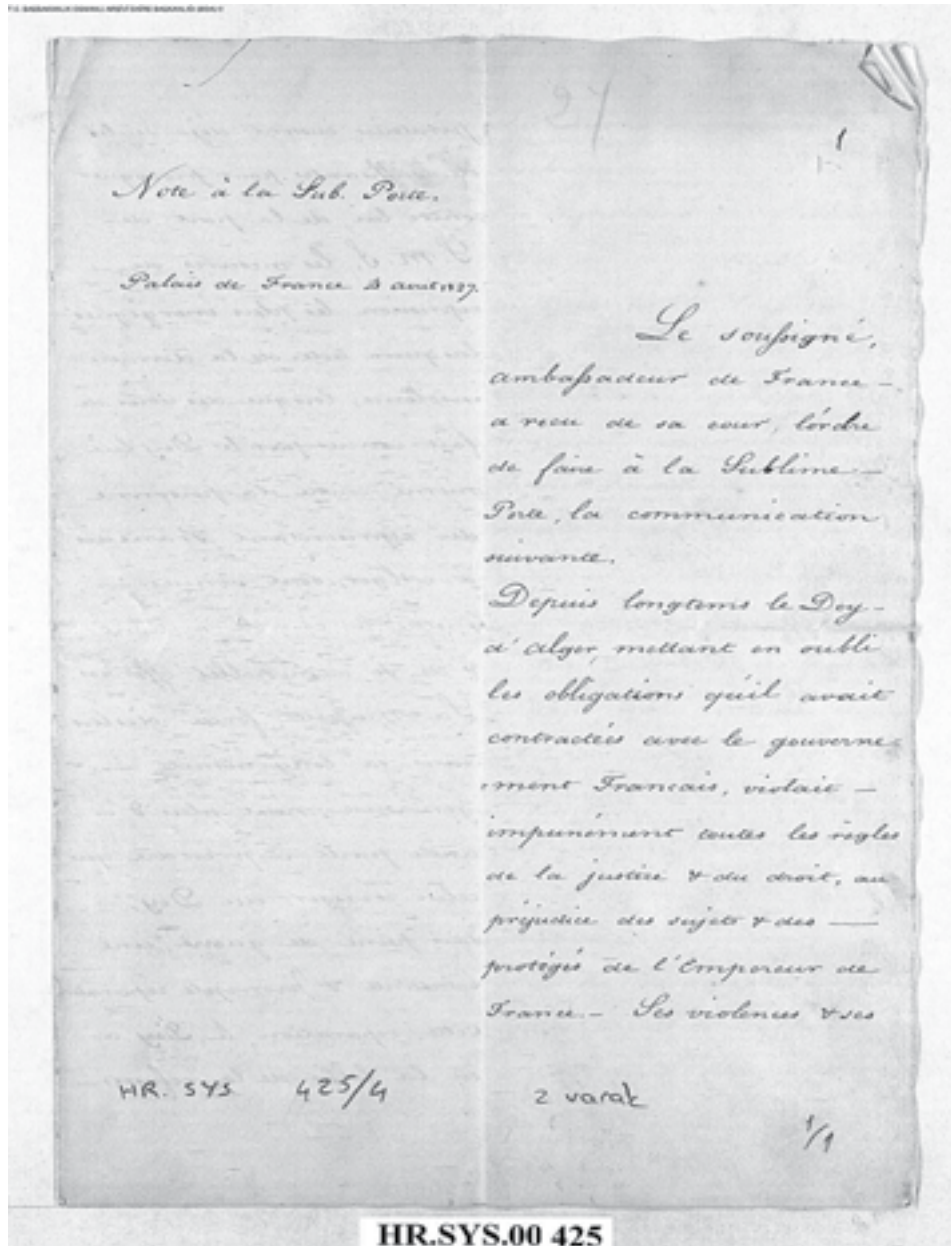 1
Note à la Sub. Porte.
Palais de France 4 aout 1827.
Le soussigné,
ambassadeur de France —
a recu de sa cour, l'ordre
de faire à la Sublime —
Porte, la communication
suivante.
Depuis longtems le Dey —
d'alger, mettant en oubli
les obligations qu'il avait
contractées avec le gouverne-
ment Francais, violait —
impunément toutes les règles
de la justice & du droit, au
préjudice des sujets & des —
protégés de l'Empereur de
France. — Ses violences & ses
HR. SYS 425/4
2 varak
1/1
HR.SYS.00 425